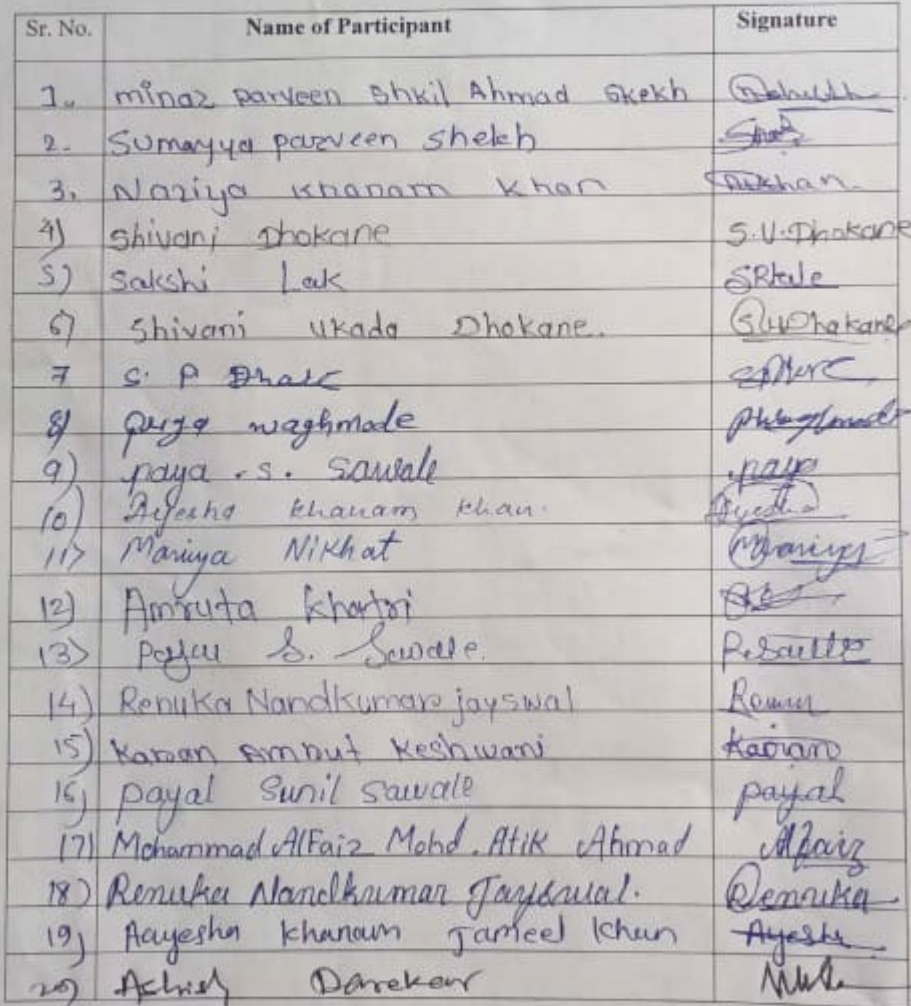 Sr. No. Name of Participant Signature
1. minaz parveen Shkil Ahmad Skekh
2. Sumayya parveen Shekh
3. Naziya Khanam Khan
4) Shivani Dhokane S.U.Dhokane
5) Sakshi Lak
6) Shivani Ukada Dhokane. S.U.Dhokane
7 S. P
8) Puja waghmade
9) paya .S. Sawale paya
10) Ayesha Khanam Khan. Ayesha
11) Mariya Nikhat Mariya
12) Amruta Khatri
13) Payal S. Sawale.
14) Renuka Nandkumar jayswal Renu
15) Karan Amrut Keshwani Karan
16) Payal Sunil Sawale payal
17) Mohammad AlFaiz Mohd. Atik Ahmad Alfaiz
18) Renuka Nandkumar Jayswal. Renuka
19) Aayesha Khanam Jameel Khan Ayesha
20) Ashish Darekar